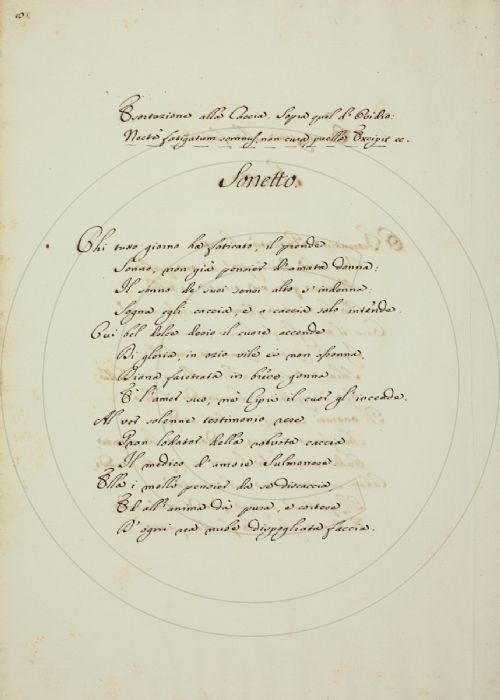 Esortazione alla Caccia. Sopra quel d'Ovidio:
Nocte fatigatum somnus, non cura puellæ Excipit ec.
Sonetto.
Chi tutto giorno ha faticato, il prende
Sonno, non già pensier d'amata donna:
Il sonno de' suoi sensi alto s'indonna:
Sogna egli caccia, e a caccia solo intende.
Cui bel dolce desio il cuore accende
Di gloria, in ozio vile ei non assonna,
Diana faretrata in breve gonna
È l'amor suo, nè Cipri il cuor gl'incende.
Al ver solenne testimonio rese
Gran lodator della robusta caccia
Il medico d'amore Sulmonese
Ella i molli pensier da se discaccia,
Ed all'anima dà pura, e cortese
D'ogni rea nube dispogliata faccia.